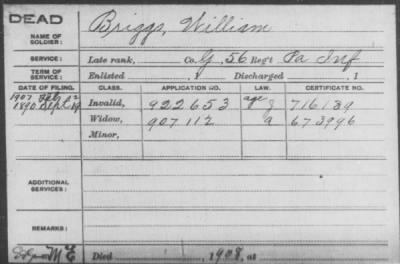 DEAD
NAME OF SOLDIER: Briggs, William
SERVICE: Late rank, Co. G, 56 Reg't Pa Inf
TERM OF SERVICE: Enlisted , 1 Discharged , 1
DATE OF FILING. CLASS. APPLICATION NO. LAW. CERTIFICATE NO.
1907 Invalid, 922653 age 716189
1890 Sept Widow, 907112 a 673996
Minor,
ADDITIONAL SERVICES:
REMARKS:
M E Died , 1908, at